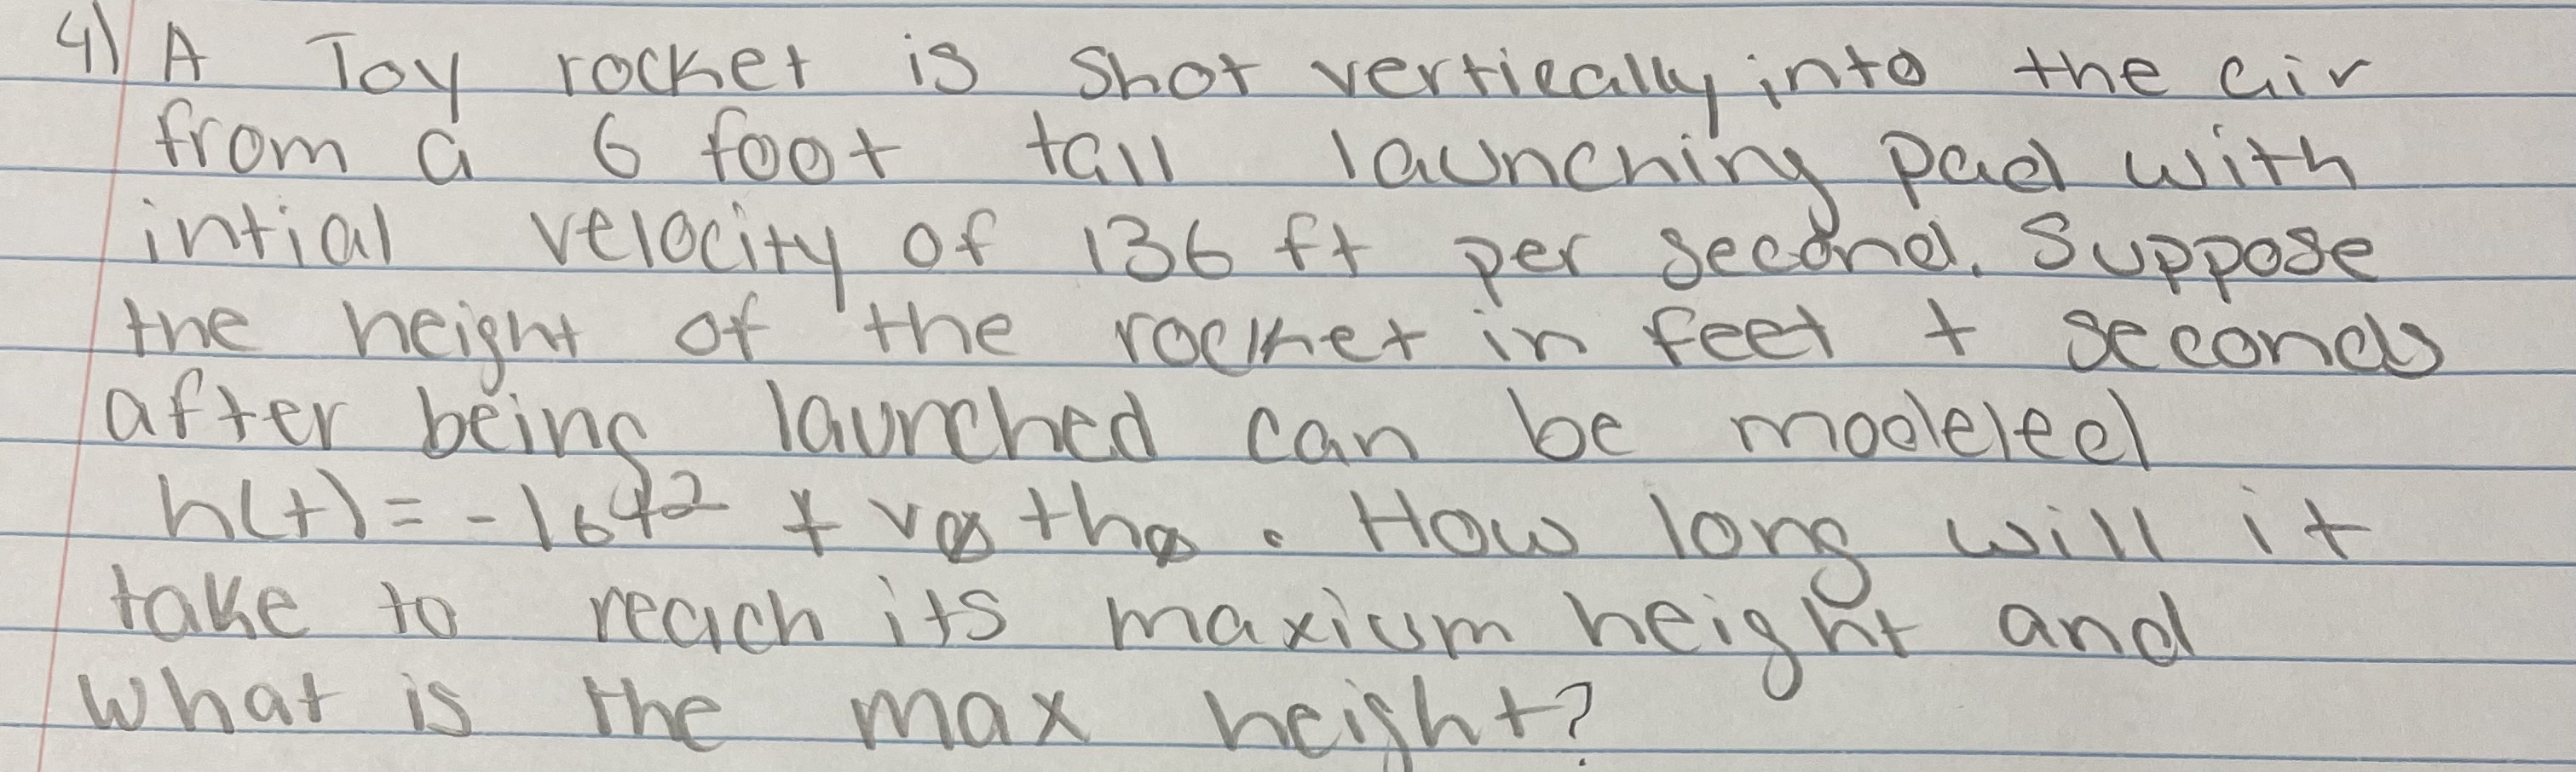 4) A Toy rocket is shot vertically into the air
from a 6 foot tall launching pad with
intial velocity of 136 ft per second. Suppose
the height of the rocket in feet t seconds
after being launched can be modeled
h(t) = -16t² + v₀ t h₀. How long will it
take to reach its maxium height and
what is the max height?